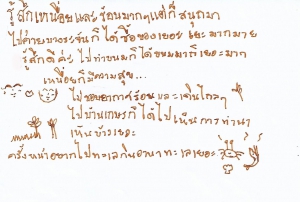 รู้สึกเหนื่อยและร้อนมากๆแต่ก็สนุกมาก
ไปค่ายบางระจันก็ได้ซื้อของเยอะแยะมากมาย
รู้สึกดีค่ะ ไปทำขนมก็ได้ขนมมาก็เยอะมาก
เหนื่อยก็มีความสุข...
ไม่ชอบอากาศร้อน และเดินไกลๆ
ไปบ้านเกษตรก็ได้ไปเห็นการทำนา
เห็นบัวเยอะ
ครั้งหน้าอยากไปทะเลกินอาหารทะเลเยอะๆ